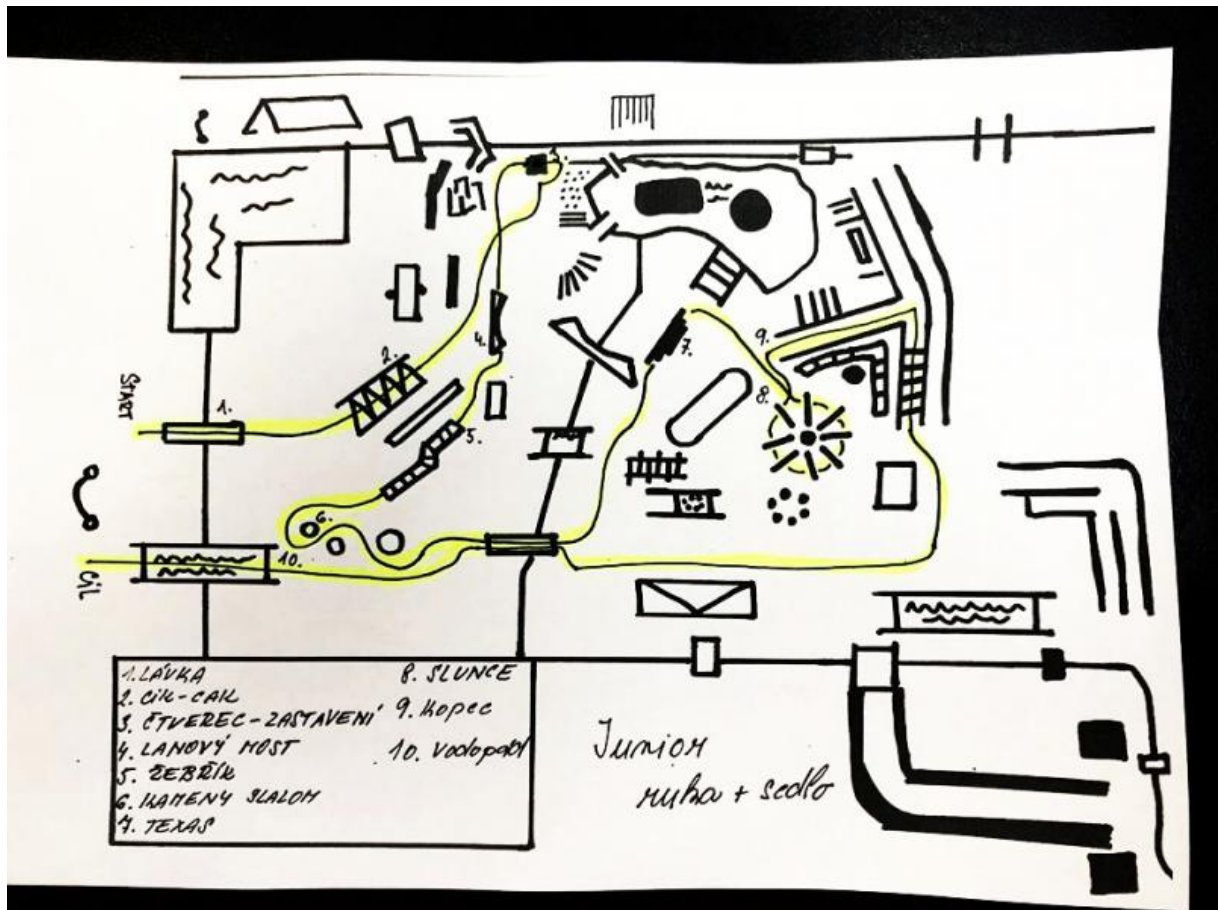 START
1.
2.
3.
4.
5.
6.
7.
8.
9.
10.
CÍL
1. LÁVKA
2. CIK-CAK
3. ČTVEREC-ZASTAVENÍ
4. LANOVÝ MOST
5. ŽEBŘÍK
6. KAMENÝ SLALOM
7. TEXAS
8. SLUNCE
9. Kopec
10. Vodopád
Junior
ruka + sedlo